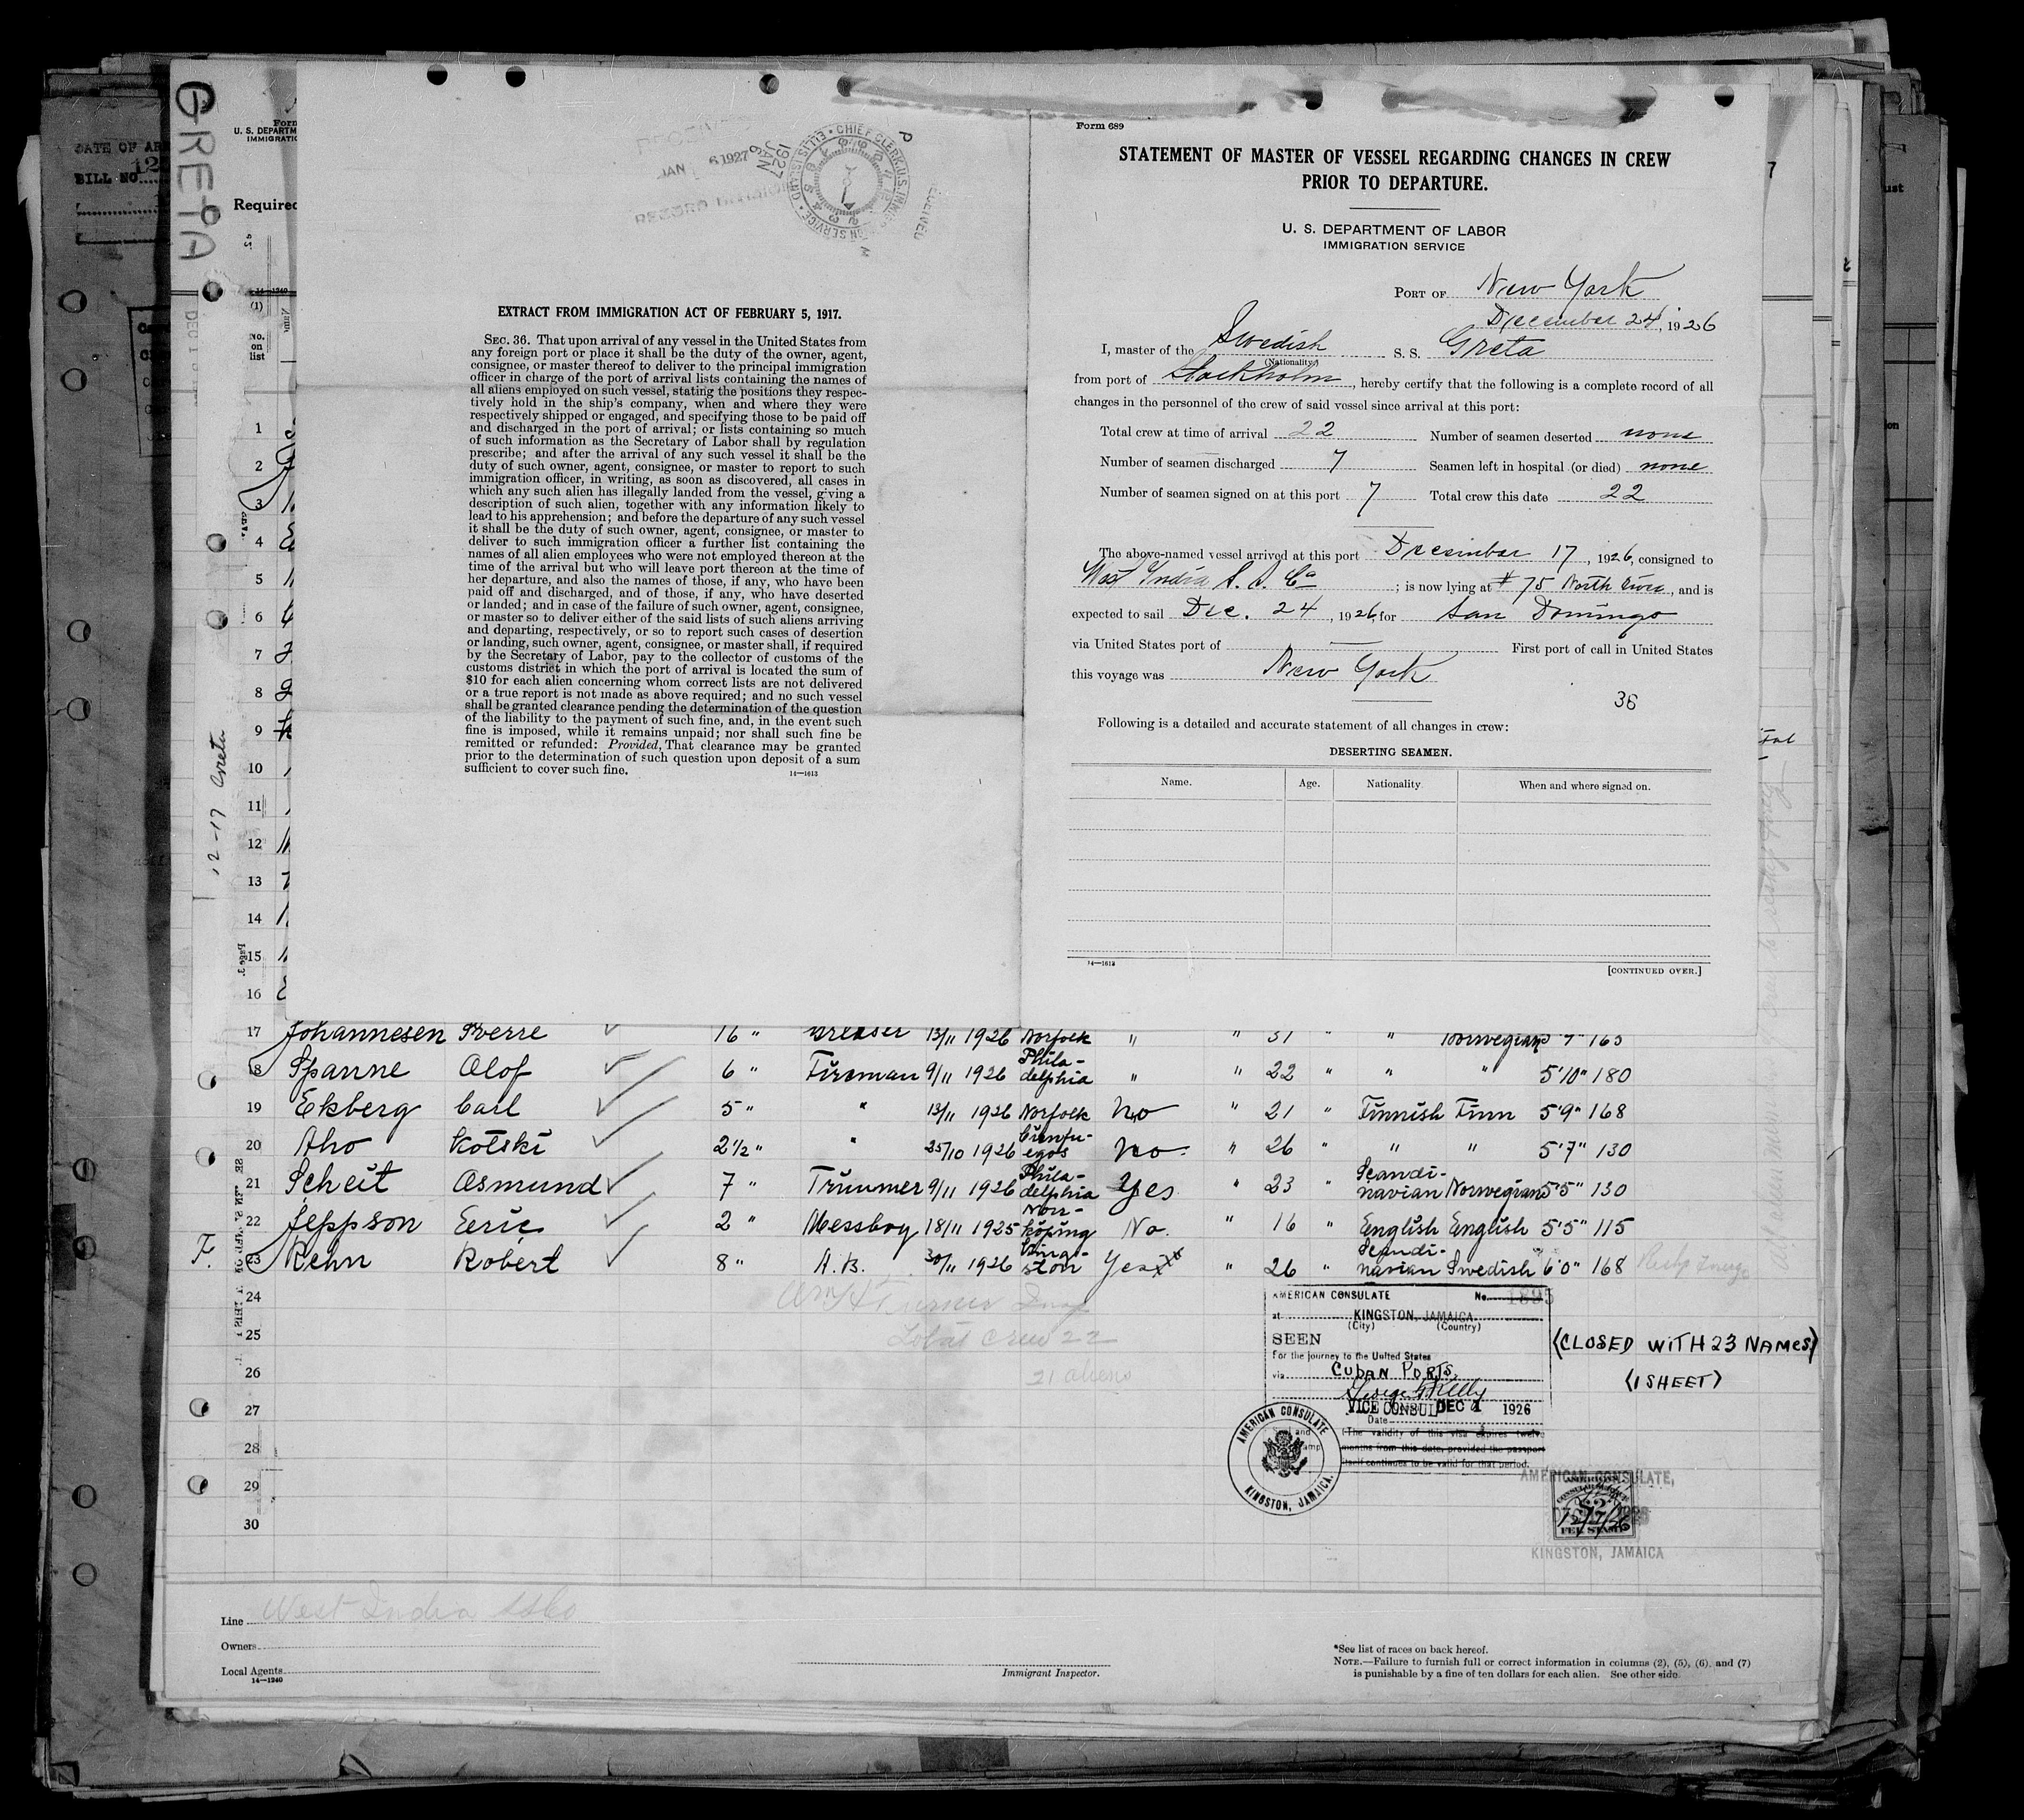 GRETA
DATE OF AR
BILL NO.
Form
U. S. DEPARTM
IMMIGRATIO
Required
14—1240
(1)
No.
on
list
12-17 Greta
JAN 6 1927
RECORD DIVISION
CHIEF CLERK, U.S. IMMIGRATION SERVICE • ELLIS ISLAND •
1927
JAN
6
RECEIVED
EXTRACT FROM IMMIGRATION ACT OF FEBRUARY 5, 1917.
SEC. 36. That upon arrival of any vessel in the United States from
any foreign port or place it shall be the duty of the owner, agent,
consignee, or master thereof to deliver to the principal immigration
officer in charge of the port of arrival lists containing the names of
all aliens employed on such vessel, stating the positions they respec-
tively hold in the ship's company, when and where they were
respectively shipped or engaged, and specifying those to be paid off
and discharged in the port of arrival; or lists containing so much
of such information as the Secretary of Labor shall by regulation
prescribe; and after the arrival of any such vessel it shall be the
duty of such owner, agent, consignee, or master to report to such
immigration officer, in writing, as soon as discovered, all cases in
which any such alien has illegally landed from the vessel, giving a
description of such alien, together with any information likely to
lead to his apprehension; and before the departure of any such vessel
it shall be the duty of such owner, agent, consignee, or master to
deliver to such immigration officer a further list containing the
names of all alien employees who were not employed thereon at the
time of the arrival but who will leave port thereon at the time of
her departure, and also the names of those, if any, who have been
paid off and discharged, and of those, if any, who have deserted
or landed; and in case of the failure of such owner, agent, consignee,
or master so to deliver either of the said lists of such aliens arriving
and departing, respectively, or so to report such cases of desertion
or landing, such owner, agent, consignee, or master shall, if required
by the Secretary of Labor, pay to the collector of customs of the
customs district in which the port of arrival is located the sum of
$10 for each alien concerning whom correct lists are not delivered
or a true report is not made as above required; and no such vessel
shall be granted clearance pending the determination of the question
of the liability to the payment of such fine, and, in the event such
fine is imposed, while it remains unpaid; nor shall such fine be
remitted or refunded: Provided, That clearance may be granted
prior to the determination of such question upon deposit of a sum
sufficient to cover such fine.
14—1613
Form 689
STATEMENT OF MASTER OF VESSEL REGARDING CHANGES IN CREW
PRIOR TO DEPARTURE.
U. S. DEPARTMENT OF LABOR
IMMIGRATION SERVICE
PORT OF New York
December 24, 1926
I, master of the Swedish S. S. Greta
(Nationality)
from port of Stockholm, hereby certify that the following is a complete record of all
changes in the personnel of the crew of said vessel since arrival at this port:
Total crew at time of arrival 22 Number of seamen deserted none
Number of seamen discharged 7 Seamen left in hospital (or died) none
Number of seamen signed on at this port 7 Total crew this date 22
The above-named vessel arrived at this port December 17, 1926, consigned to
West India S. S. Co; is now lying at # 75 North River, and is
expected to sail Dec. 24, 1926, for San Domingo
via United States port of — First port of call in United States
this voyage was New York
36
Following is a detailed and accurate statement of all changes in crew:
DESERTING SEAMEN.
Name. Age. Nationality When and where signed on.
14—1613
[CONTINUED OVER.]
1
2
3
4
5
6
7
8
9
10
11
12
13
14
15
16
17 Johannesen Sverre 16 " Greaser 13/11 1926 Norfolk " " 31 " " Norwegian 5'7" 163
18 Spanne Olof 6 " Fireman 9/11 1926 Phila-delphia " " 22 " " " 5'10" 180
19 Ekberg Carl 5 " " 13/11 1926 Norfolk No " 21 " Finnish Finn 5'9" 168
20 Aho Kotski 2 1/2 " " 25/10 1926 Cienfu-egos No. " 26 " " " 5'7" 130
21 Scheit Asmund 7 " Trimmer 9/11 1926 Phila-delphia Yes " 23 " Scandi-navian Norwegian 5'5" 130
22 Jeppson Eric 2 " Messboy 18/11 1925 Norr-köping No. " 16 " English English 5'5" 115
F. 23 Rehn Robert 8 " A.B. 30/11 1926 King-ston Yes " 26 " Scandi-navian Swedish 6'0" 168
24
25
26
27
28
29
30
Wm H Turner Insp
Total crew 22
21 aliens
AMERICAN CONSULATE No. 1895
at KINGSTON, JAMAICA
(City) (Country)
SEEN
For the journey to the United States
via CUBAN PORTS.
George Kelly
VICE CONSUL DEC 1 1926
Date
(The validity of this visa expires twelve
months from this date, provided the passport
itself continues to be valid for that period.
AMERICAN CONSULATE
KINGSTON, JAMAICA.
(CLOSED WITH 23 NAMES)
(1 SHEET)
AMERICAN CONSULATE,
$2
FEE STAMP
KINGSTON, JAMAICA
Line West India SSCo
Owners
Local Agents
14—1240
Immigrant Inspector.
*See list of races on back hereof.
NOTE.—Failure to furnish full or correct information in columns (2), (5), (6), and (7)
is punishable by a fine of ten dollars for each alien. See other side.